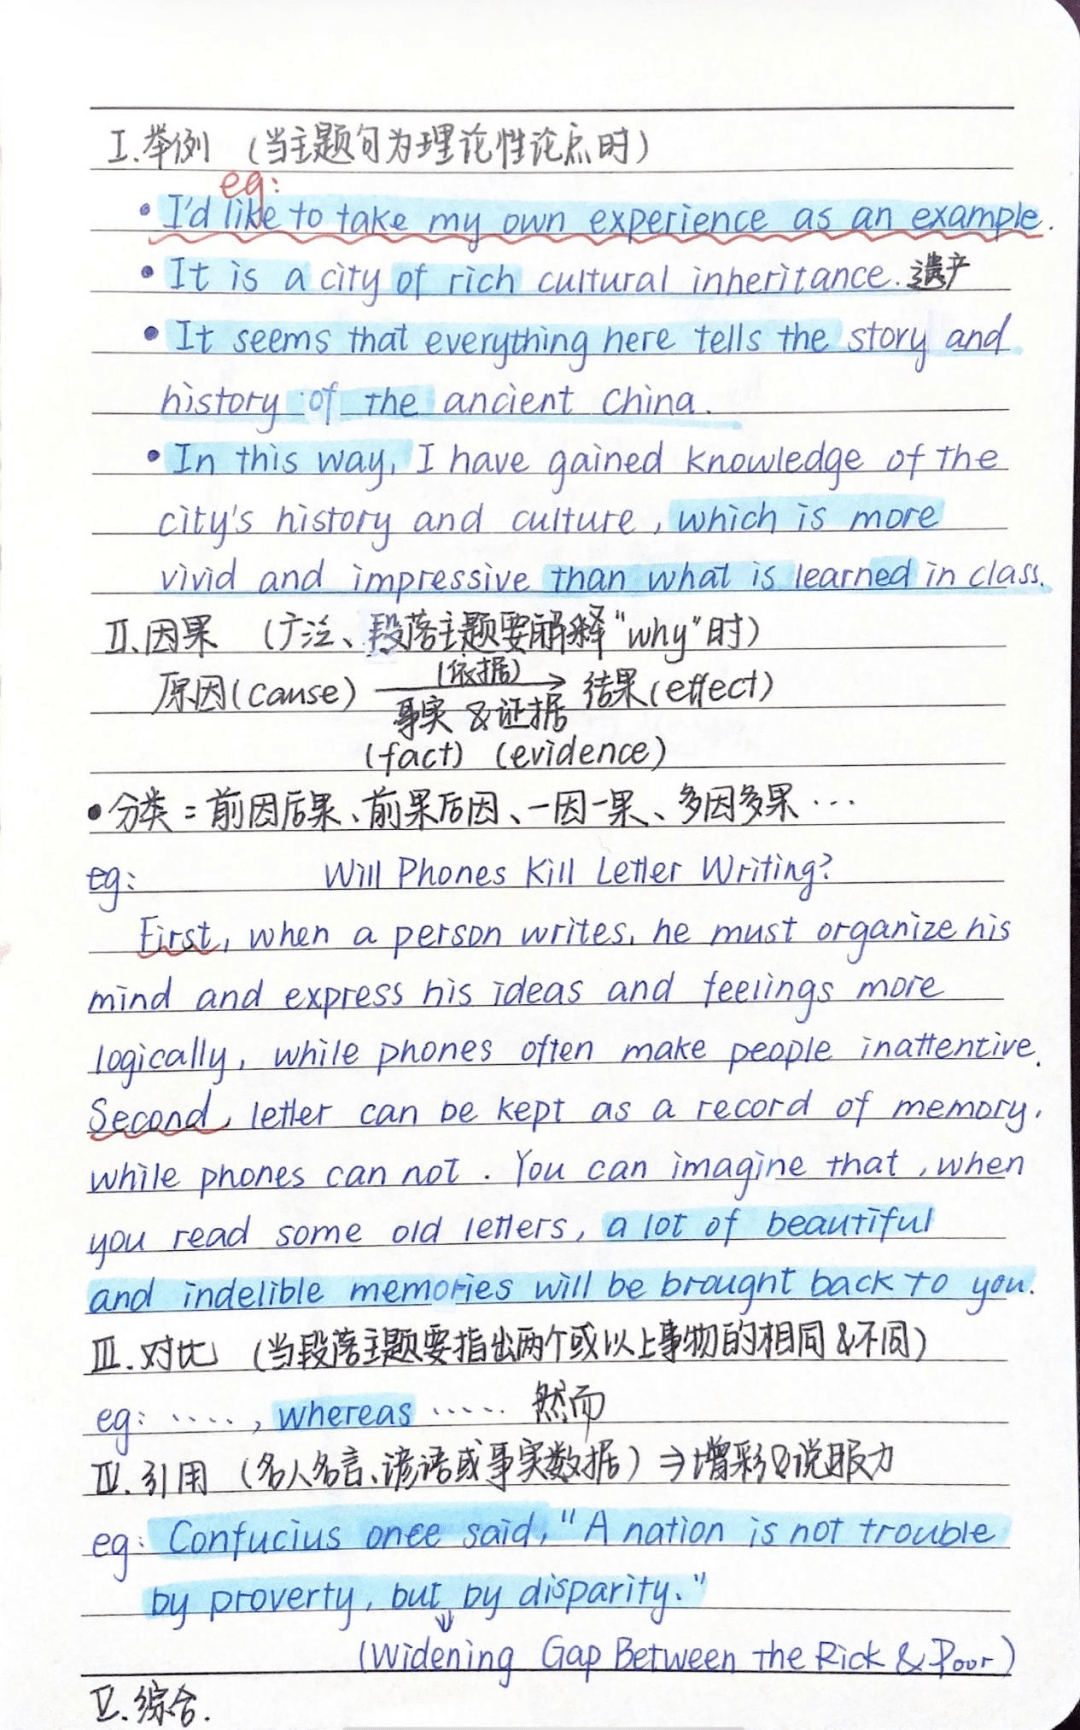 I.举例 （当主题句为理论性论点时）
eg:
• I'd like to take my own experience as an example.
• It is a city of rich cultural inheritance. 遗产
• It seems that everything here tells the story and
history of the ancient China.
• In this way, I have gained knowledge of the
city's history and culture, which is more
vivid and impressive than what is learned in class.
II.因果 （广泛、段落主题要解释"why"时）
（依据）
原因(cause) → 结果(effect)
事实 &证据
(fact) (evidence)
• 分类：前因后果、前果后因、一因一果、多因多果…
eg: Will Phones Kill Letter Writing?
First, when a person writes, he must organize his
mind and express his ideas and feelings more
logically, while phones often make people inattentive.
Second, letter can be kept as a record of memory,
while phones can not. You can imagine that, when
you read some old letters, a lot of beautiful
and indelible memories will be brought back to you.
III.对比 （当段落主题要指出两个或以上事物的相同&不同）
eg: ....., whereas ..... 然而
IV.引用 （名人名言、谚语或事实数据）⇒增彩&说服力
eg: Confucius once said, "A nation is not trouble
by proverty, but by disparity."
(Widening Gap Between the Rick & Poor)
V.综合.